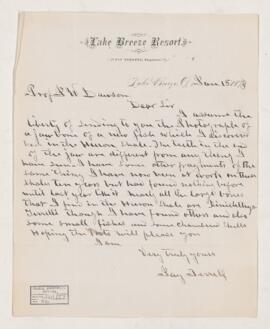 Lake Breeze Resort,
Lake Breeze, O. Jan 15 1878
Prof. J. W. Dawson
Dear Sir
I assume the
liberty of sending to you the Photograph
of a jaw bone of a new fish which I discover
ed in the Huron Shale. The teeth in the end
of the jaw are different from any thing I
have seen. I have some other fragments of the
same thing. I have now been at work on these
shales ten years but had found nothing before
until last year that
that I find in the Huron Shale are Dinichthys
Terrelli though I have found others and also
some small fishes and some
Hoping the Photo will please you
I am
Very truly yours
Jay Terrell